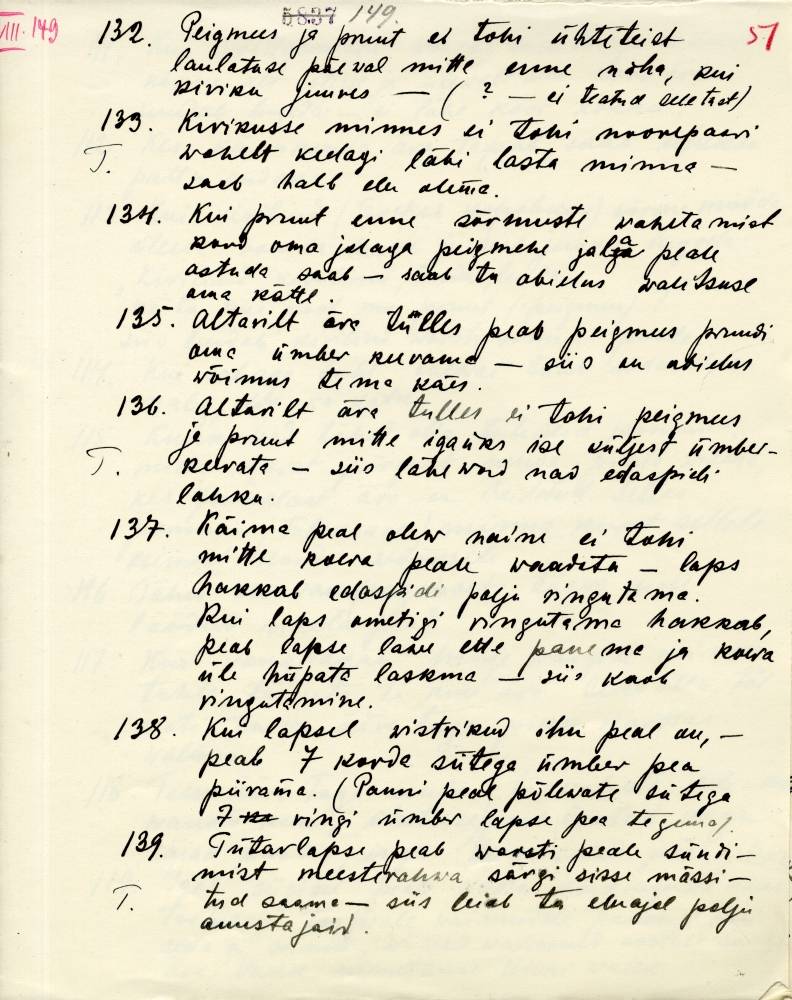 VIII. 149
5837 149.
51
132. Peigmees ja pruut ei tohi ühteteist
laulatuse päewal mitte enne näha, kui
kiriku juures — (? — ei teatud seletust)
133. Kirikusse minnes ei tohi noorepaari
T. wahelt kedagi läbi lasta minna —
saab halb elu olema.
134. Kui pruut enne sõrmuste wahetamist
kord oma jalaga peigmehe jalga peale
astuda saab — saab ta abielus walitsuse
oma kätte.
135. Altarilt ära tulles peab peigmees pruudi
oma ümber keerama — siis on abielus
wõimus tema käes.
136. Altarilt ära tulles ei tohi peigmees
ja pruut mitte igaüks ise küljest ümber-
T. keerata — siis lähewad nad edaspidi
lahku.
137. Käima peal olew naine ei tohi
mitte koera peale waadata — laps
hakkab edaspidi palju ringutama.
Kui laps ometigi ringutama hakkab,
peab lapse läwe ette panema ja koera
üle hüpata laskma — siis kaob
ringutamine.
138. Kui lapsel wistrikud ihu peal on, —
peab 7 korda sütega ümber pea
piirama. (Panni peal põlewate sütega
7 ringi ümber lapse pea tegema).
139. Tütarlapse peab warsti peale sündi-
mist meesterahwa särgi sisse mässi-
T. tud saama — siis leiab ta eluajal palju
armastajaid.